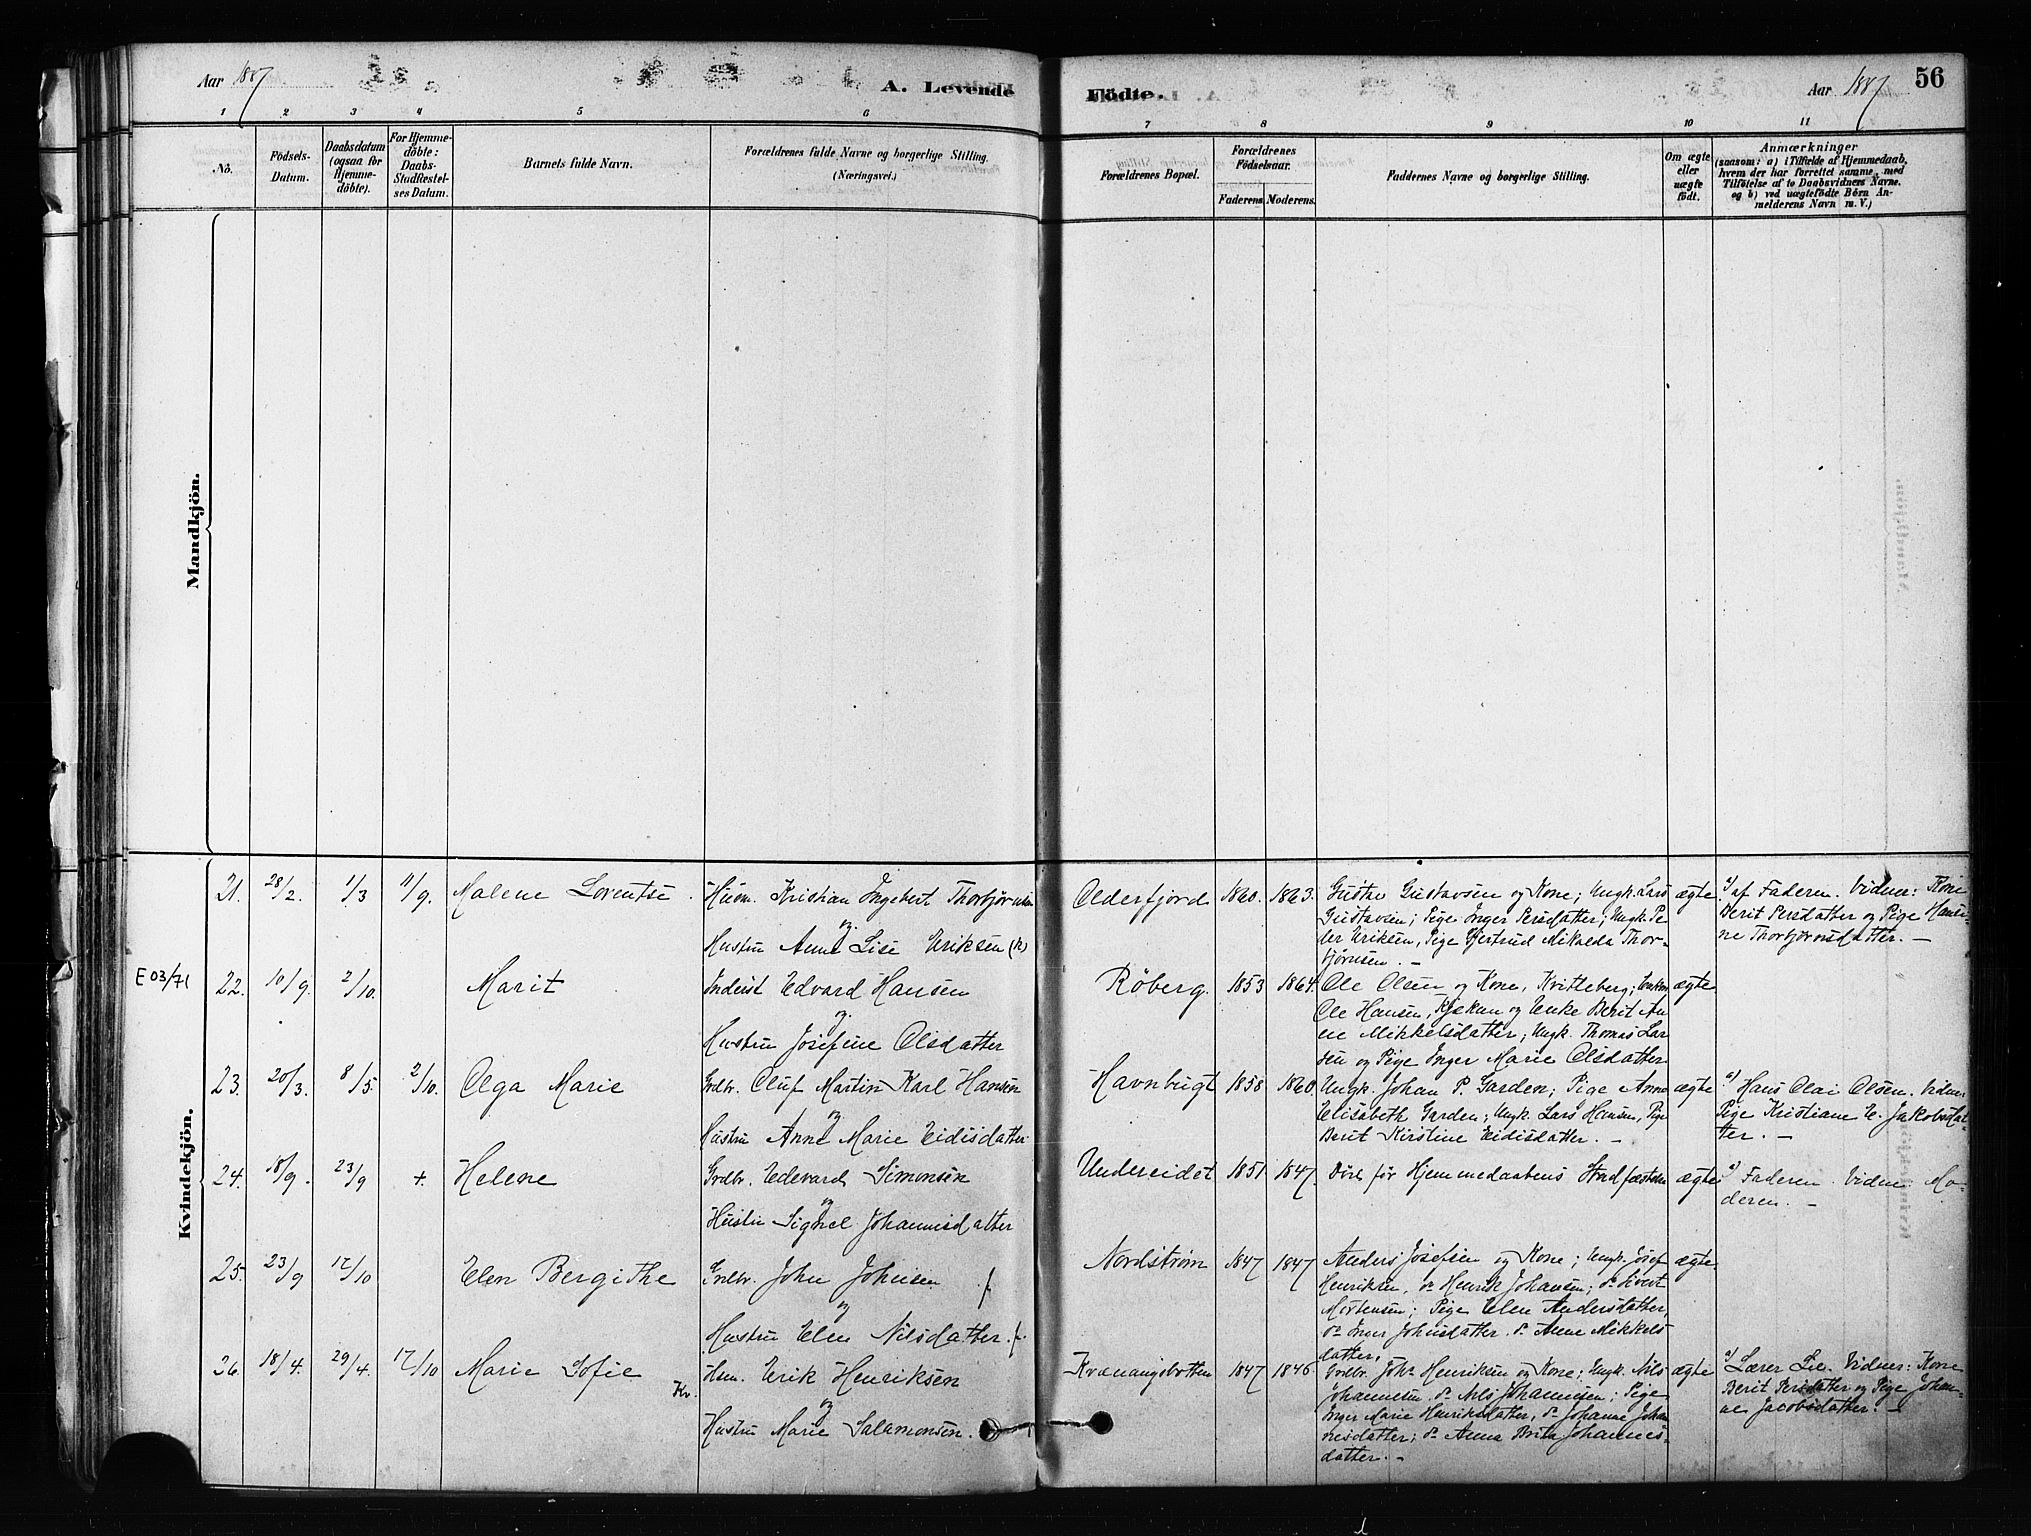 Aar 1887
A. Levende
Födte.
Aar 1887
56
1 2 3 4 5 6 7 8 9 10 11
No.
Födsels-
Datum.
Daabsdatum
(ogsaa for
Hjemme-
döbte).
For Hjemme-
döbte:
Daabs-
Stadfæstel-
ses Datum.
Barnets fulde Navn.
Forældrenes fulde Navne og borgerlige Stilling.
(Næringsvei.)
Forældrenes Bopæl.
Forældrenes
Födselsaar.
Faderens Moderens.
Faddernes Navne og borgerlige Stilling.
Om ægte
eller
uægte
födt.
Anmærkninger
(saasom: a) i Tilfælde af Hjemmedaab,
hvem der har forrettet samme, med
Tilföielse af to Daabsvidners Navne.
og b) ved uægtefödte Börn An-
melderens Navn m. V.)
Mandkjön.
Kvindekjön.
21. 28/2. 1/3 11/9. Malene Lorentse.
Husm. Kristian Ingebert Thorbjørnsen
og
Hustru Anne Lise Eriksen (k)
Olderfjord 1860. 1863.
Gustav Gustavsen og Kone; Ungk. Lars
Gustavsen; Pige Inger Persdatter; Ungk. Pe-
der Eriksen, Pige Gjertrud Mikalda Thor-
bjørnsen. -
ægte
a) af Faderen. Vidner: Kone
Berit Persdatter og Pige Hansi-
ne Thorbjørnsdatter. -
E 03/71
22. 10/9. 2/10. Marit
Inderst Edvard Hansen
og
Hustru Josefine Olsdatter
Røberg. 1853 1864.
Ole Olsen og Kone, Kvitteberg; Enkem.
Ole Hansen, Kjækan og Enke Berit An-
ne Mikkelsdatter; Ungk. Thomas Lar-
sen og Pige Inger Marie Olsdatter
ægte
23. 20/3. 8/5. 2/10. Olga Marie
Grdbr. Oluf Martin Karl Hansen
og
Hustru Anne Marie Eidisdatter
Havnbugt 1858 1860.
Ungk. Johan P. Garden; Pige Anne
Elisabeth Garden; Ungk. Lars Hansen, Pige
Berit Kirstine Eidisdatter. -
ægte
a) Hans Olai Olsen. Vidner
Pige Kristiane E. Jakobsdat-
ter. -
24. 18/9. 23/9 +. Helene
Grdbr. Edevard Simonsen
og
Hustru Signel Johannesdatter
Undereidet 1851 1847.
Død før Hjemmedaabens Stadfæstelse
ægte
a) Faderen. Vidne Mo-
deren. -
25. 23/9 12/10 Elen Bergithe
Grdbr. John Johnsen
og
Hustru Elen Nilsdatter.
Nordstrøm 1847 1847
Anders Josefsen og Kone; Ungk. Josef
Henriksen, do Henrik Johansen; do Sivert
Mortensen; Pige Elen Andersdatter,
do Inger Johnsdatter. do Anne Mikkels
datter.
ægte.
26. 18/4. 29/4. 12/10 Marie Sofie
Kv.
Hsm. Erik Henriksen
og
Hustru Marie Salamonsen.
Kvænangsbotten 1847 1846.
Grdbr. Johs Henriksen og Kone; Ungk. Nils
Johannesen. do Nils Johannesen; Pige
Inger Marie Henriksdatter, do Johanne Johan
nesdatter; do Anna Brita Johannes-
datter. -
ægte
a) Lærer Lie. Vidner: Kone
Berit Persdatter og Pige Johan-
ne Jacobsdatter. -